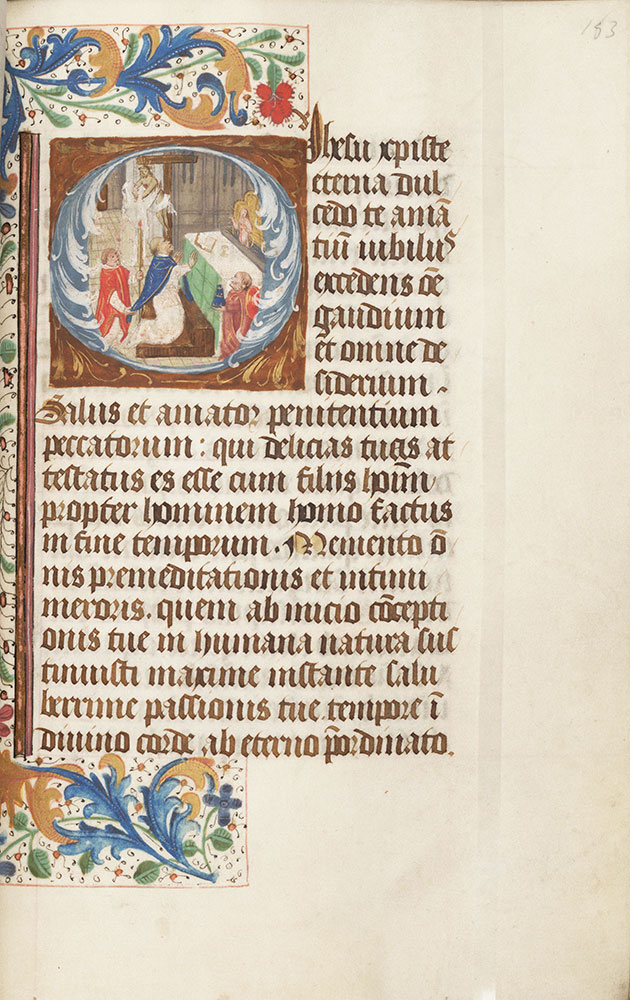 183
Ihesu xpiste
eterna dul
cedo te amā
tiū iubilus
excedens oē
gaudium
et omne de
siderium.
Salus et amator penitentium
peccatorum: qui delicias tuas at
testatus es esse cum filiis hoīm
propter hominem homo factus
in fine temporum. Memento ō
nis premeditationis et intimi
meroris. quem ab inicio cōcepti
onis tue in humana natura sus
tinuisti maxime instante salu
berrime passionis tue tempore ī
diuino corde ab eterno p̄ordinato.